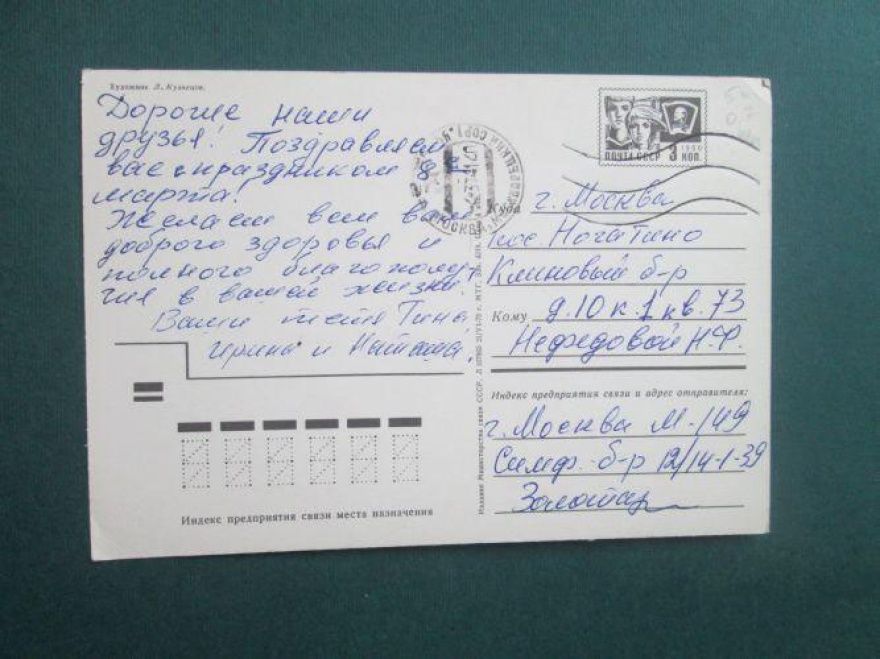 Художник Л. Кузнецов.
Дорогие наши
друзья! Поздравляем
вас с праздником 8
марта!
Желаем вам
доброго здоровья и
полного благополу-
чия в вашей жизни.
Ваши тетя Тина
Ирина и Наташа.
ПОЧТА СССР 3 КОП. 1966
МОСКВА
Куда г. Москва
пос. Ногатино
Клиновый б-р
д. 10 к. 1 кв. 73
Кому
Нефедовой Н.Ф.
Индекс предприятия связи и адрес отправителя:
г. Москва М-149
Симф. б-р 12/14-1-39
Золотар
Индекс предприятия связи места назначения
Издание Министерства связи СССР.